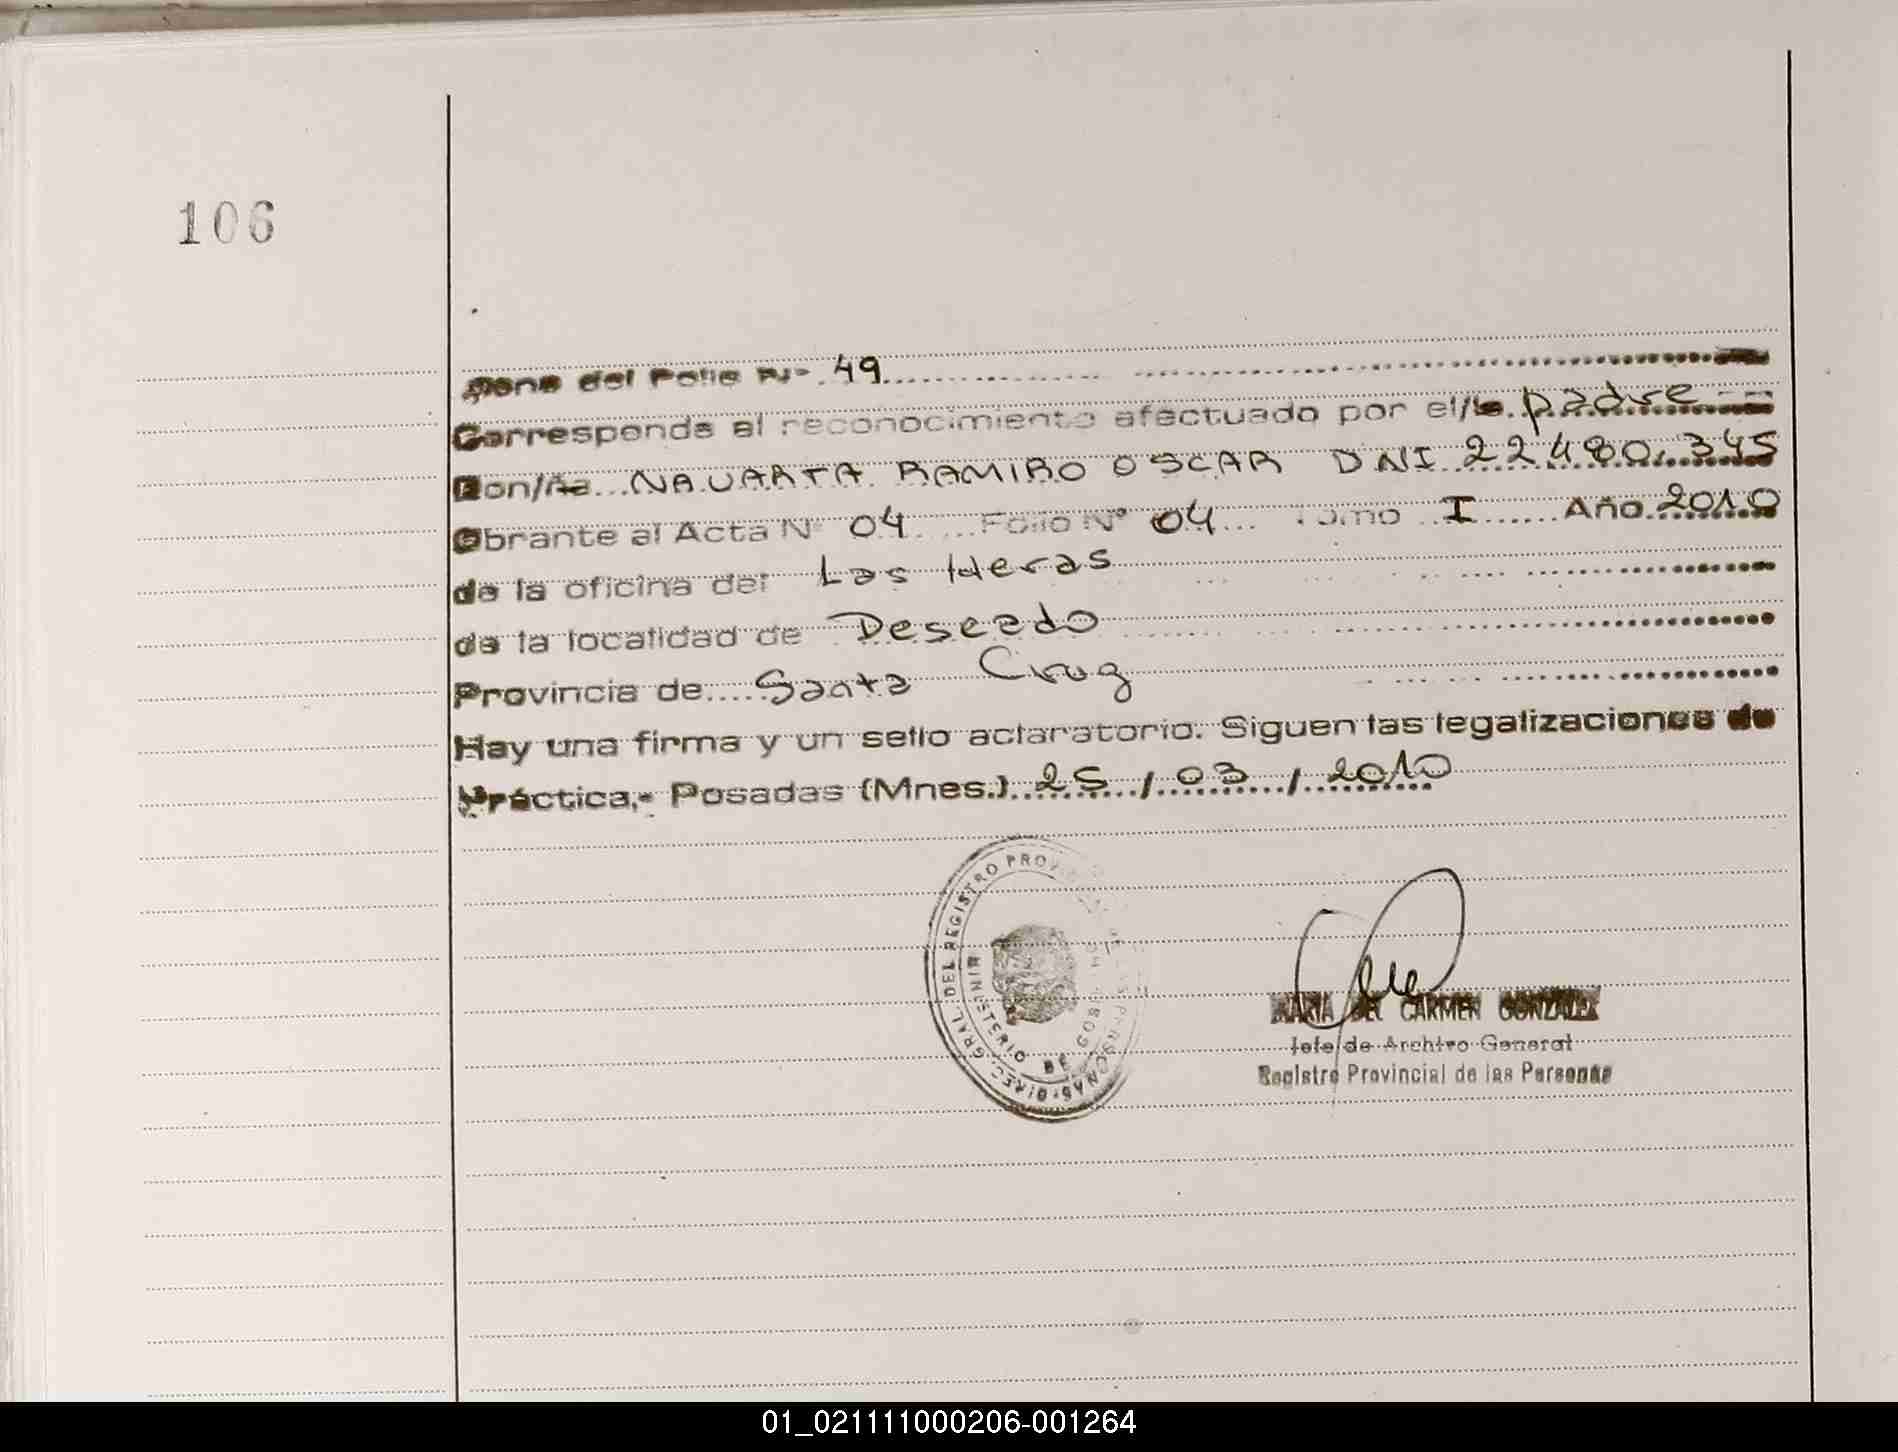 106
del Folio Nº 49
Corresponde al reconocimiento afectuado por el/la padre
Don/ña NAVARTA RAMIRO OSCAR DNI 22.480.345
Obrante al Acta Nº 04 Folio Nº 04 Tomo I Año 2010
de la oficina del Las Heras
de la localidad de Deseado
Provincia de Santa Cruz
Hay una firma y un sello aclaratorio. Siguen las legalizaciones de
Práctica.- Posadas (Mnes.) 25/03/2010
DIREC. GRAL. DEL REGISTRO PROV. DE LAS PERSONAS
MINISTERIO DE GOB
MARIA DEL CARMEN GONZALEZ
Jefe de Archivo General
Registro Provincial de las Personas
01_021111000206-001264